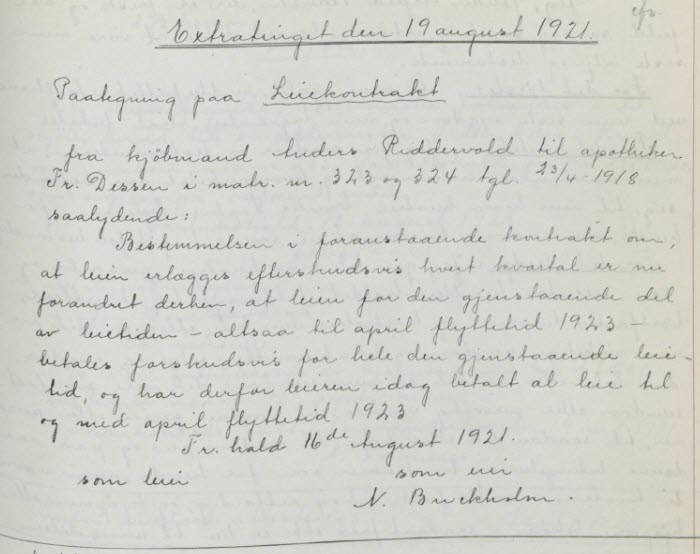 Extratinget den 19 august 1921.
Paategning paa Leiekontrakt
fra kjöbmand Anders Riddervold til apotheker
Fr. Dessen i matr. nr. 323 og 324 tgl. 23/4-1918
saalydende:
Bestemmelsen i foranstaaende kontrakt om,
at leien erlægges efterskudsvis hvert kvartal er nu
forandret derhen, at leien for den gjenstaaende del
av leietiden - altsaa til april flyttetid 1923 -
betales forskudsvis for hele den gjenstaaende leie-
tid, og har derfor leieren idag betalt al leie til
og med april flyttetid 1923
Fr. hald 16de August 1921.
som leier som eier
N. Buckholm.